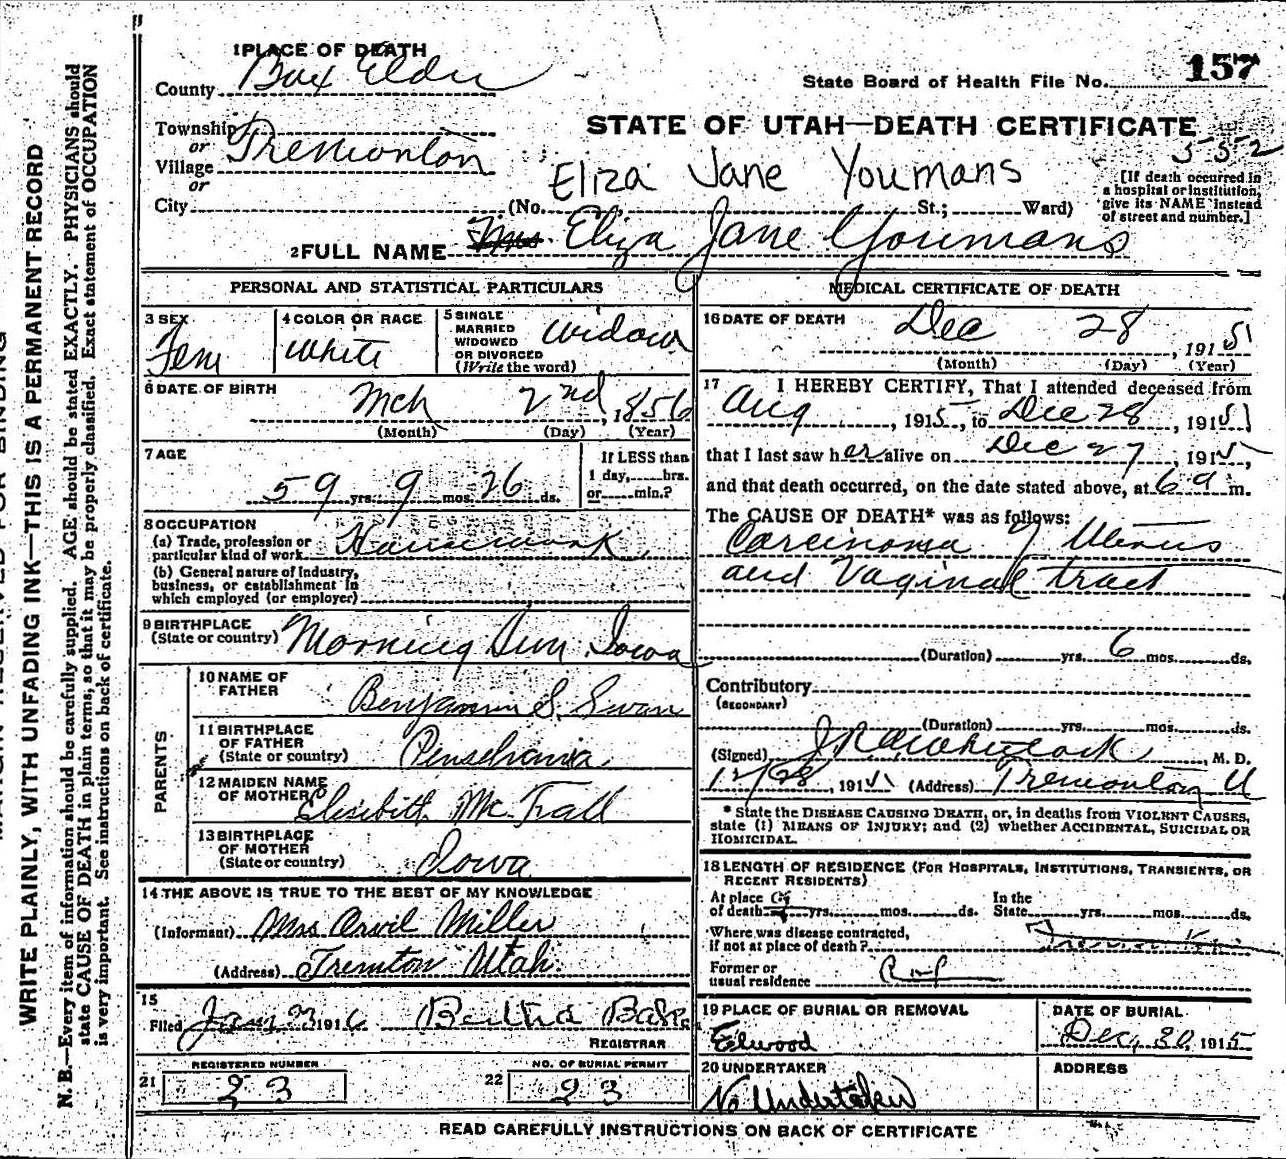 1 PLACE OF DEATH
County Box Elder
State Board of Health File No. 157
STATE OF UTAH—DEATH CERTIFICATE
552
Township
or
Village Tremonton
or
City (No. St.; Ward)
Eliza Jane Youmans
[If death occurred in
a hospital or institution,
give its NAME instead
of street and number.]
2 FULL NAME Mrs Eliza Jane Youmans
PERSONAL AND STATISTICAL PARTICULARS
3 SEX Fem
4 COLOR OR RACE White
5 SINGLE
MARRIED
WIDOWED
OR DIVORCED
(Write the word) Widow
6 DATE OF BIRTH Mch 2nd, 1856
(Month) (Day) (Year)
7 AGE
59 yrs. 9 mos. 26 ds.
If LESS than
1 day, hrs.
or min.?
8 OCCUPATION
(a) Trade, profession or
particular kind of work Housework
(b) General nature of Industry,
business, or establishment in
which employed (or employer)
9 BIRTHPLACE
(State or country) Morning Sun Iowa
PARENTS
10 NAME OF
FATHER Benjamin S. Swan
11 BIRTHPLACE
OF FATHER
(State or country) Penselvania
12 MAIDEN NAME
OF MOTHER Elisibith Mc Fall
13 BIRTHPLACE
OF MOTHER
(State or country) Iowa
14 THE ABOVE IS TRUE TO THE BEST OF MY KNOWLEDGE
(Informant) Mrs Orvil Miller
(Address) Tremton Utah.
15
Filed Jan 3 1916 Bertha
REGISTRAR
REGISTERED NUMBER
21 23
NO. OF BURIAL PERMIT
22 23
MEDICAL CERTIFICATE OF DEATH
16 DATE OF DEATH Dec 28, 1915
(Month) (Day) (Year)
17 I HEREBY CERTIFY, That I attended deceased from
Aug, 1915, to Dec 28, 1915
that I last saw her alive on Dec 27, 1915,
and that death occurred, on the date stated above, at 6 a m.
The CAUSE OF DEATH* was as follows:
Carcinoma of Uterus
and Vaginal tract
(Duration) yrs. 6 mos. ds.
Contributory
(SECONDARY)
(Duration) yrs. mos. ds.
(Signed) M. D.
12/28, 1915 (Address) Tremonton U
* State the DISEASE CAUSING DEATH, or, in deaths from VIOLENT CAUSES,
state (1) MEANS OF INJURY; and (2) whether ACCIDENTAL, SUICIDAL OR
HOMICIDAL.
18 LENGTH OF RESIDENCE (FOR HOSPITALS, INSTITUTIONS, TRANSIENTS, OR
RECENT RESIDENTS)
At place
of death yrs. mos. ds.
In the
State yrs. mos. ds.
Where was disease contracted,
if not at place of death?
Former or
usual residence
19 PLACE OF BURIAL OR REMOVAL
Elwood
DATE OF BURIAL
Dec, 30, 1915
20 UNDERTAKER
No Undertaker
ADDRESS
READ CAREFULLY INSTRUCTIONS ON BACK OF CERTIFICATE
WRITE PLAINLY, WITH UNFADING INK—THIS IS A PERMANENT RECORD
N. B.—Every item of information should be carefully supplied. AGE should be stated EXACTLY. PHYSICIANS should
state CAUSE OF DEATH in plain terms, so that it may be properly classified. Exact statement of OCCUPATION
is very important. See instructions on back of certificate.